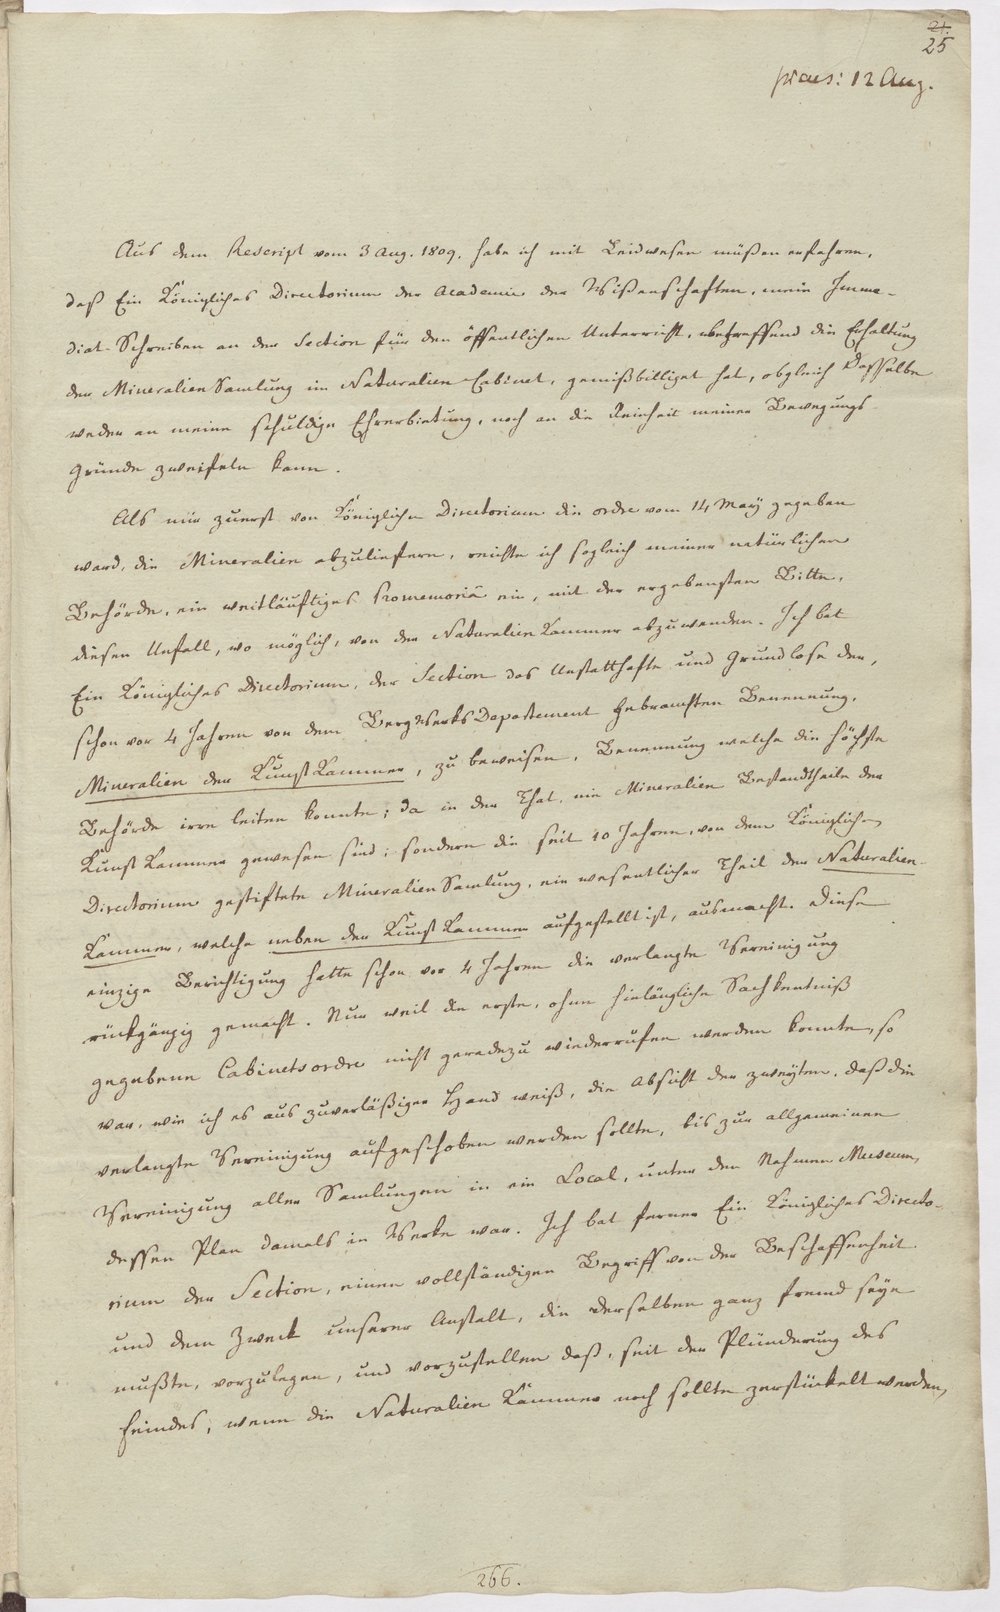 21.
25
praes: 12 Aug.
Aus dem Rescript vom 3 Aug. 1809. habe ich mit Leidwesen müßen erfahren,
daß Ein Königliches Directorium der Academie der Wißenschaften, mein Imme-
diat-Schreiben an der Section für den öffentlichen Unterricht, betreffend die Erhaltung
der Mineralien Samlung im Naturalien-Cabinet, gemißbilliget hat, obgleich Dasselbe
weder an meine schuldige Ehrerbietung, noch an die Reinheit meiner Bewegungs-
gründe zweifeln kann.
Als mir zuerst von Königliche Directorium die ordre vom 14 May gegeben
ward, die Mineralien abzuliefern, reichte ich sogleich meiner natürlichen
Behörde, ein weitläuftiges Promemoria ein, mit der ergebensten Bitte,
diesen Unfall, wo möglich, von der Naturalien Kammer abzuwenden. Ich bat
Ein Königliches Directorium, der Section das Unstatthafte und Grundlose der,
schon vor 4 Jahren von dem Bergwerks Departement gebrauchten Benennung,
Mineralien der Kunst Kammer, zu beweisen, Benennung welche die höchste
Behörde irre leiten konnte; da in der That, nie Mineralien Bestandtheile der
Kunst Kammer gewesen sind; sondern die seit 10 Jahren, von dem Königlichen
Directorium gestiftete Mineralien Samlung, ein wesentlicher Theil der Naturalien-
Kammer, welche neben der Kunst Kammer aufgestellt ist, ausmacht. Diese
einzige Berichtigung hatte schon vor 4 Jahren die verlangte Vereinigung
rückgängig gemacht. Nur weil die erste, ohne hinlängliche Sachkentniß
gegebene Cabinetsordre nicht geradezu wiederrufen werden konnte, so
war, wie ich es aus zuverläßiger Hand weiß, die Absicht der zweyten, daß die
verlangte Vereinigung aufgeschoben werden sollte, bis zur allgemeinen
Vereinigung aller Samlungen in ein Local, unter den Nahmen Museum,
dessen Plan damals in Werke war. Ich bat ferner Ein Königliches Directo-
rium der Section, einen vollständigen Begriff von der Beschaffenheit
und dem Zweck unserer Anstalt, die derselben ganz fremd seyn
mußte, vorzulegen, und vorzustellen daß, seit der Plünderung des
Feindes, wenn die Naturalien Kammer noch sollte zerstückelt werden,
266.